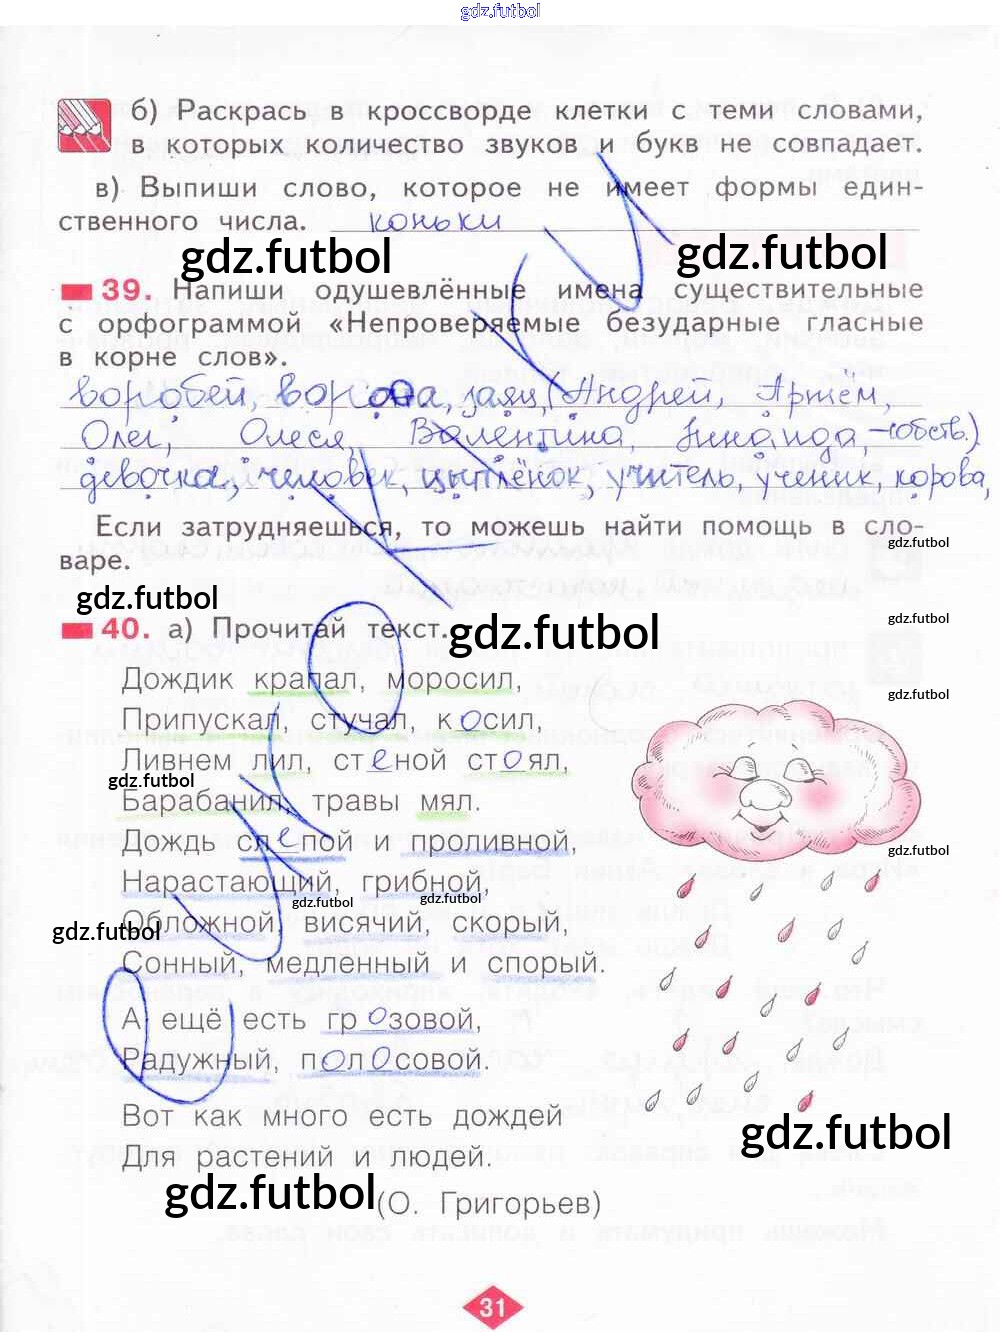 gdz.futbol
б) Раскрась в кроссворде клетки с теми словами,
в которых количество звуков и букв не совпадает.
в) Выпиши слово, которое не имеет формы един-
ственного числа. коньки
gdz.futbol gdz.futbol
39. Напиши одушевлённые имена существительные
с орфограммой «Непроверяемые безударные гласные
в корне слов».
воробей, ворона, заяц, (Андрей, Артём,
Олег, Олеся, Валентина, Зинаида, - собств.)
девочка, человек, цыплёнок, учитель, ученик, корова,
Если затрудняешься, то можешь найти помощь в сло-
gdz.futbol
варе.
gdz.futbol
40. а) Прочитай текст.
gdz.futbol
gdz.futbol
Дождик крапал, моросил,
gdz.futbol
Припускал, стучал, косил,
Ливнем лил, стеной стоял,
gdz.futbol
Барабанил, травы мял.
Дождь слепой и проливной,
gdz.futbol
Нарастающий, грибной,
gdz.futbol gdz.futbol
Обложной, висячий, скорый,
gdz.futbol
Сонный, медленный и спорый.
А ещё есть грозовой,
Радужный, полосовой.
Вот как много есть дождей
gdz.futbol
Для растений и людей.
gdz.futbol
(О. Григорьев)
31